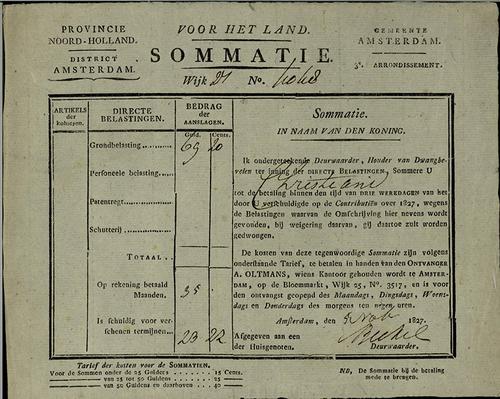 PROVINCIE
NOORD-HOLLAND.
DISTRICT
AMSTERDAM.
VOOR HET LAND.
SOMMATIE.
Wijk 21 No.
GEMEENTE
AMSTERDAM.
3e. ARRONDISSEMENT.
ARTIKELS
der
kohieren.
DIRECTE
BELASTINGEN.
BEDRAG
der
AANSLAGEN.
Guld. Cents.
Grondbelasting 69 20
Personeele belasting
Patentregt
Schutterij
TOTAAL
Op rekening betaald
Maanden. 35
Is schuldig voor ver-
schenen termijnen 23 22
Sommatie.
IN NAAM VAN DEN KONING.
Ik ondergeteekende Deurwaarder, Houder van Dwangbe-
velen ter inning der DIRECTE BELASTINGEN, Sommere U
Christiani
tot de betaling binnen den tijd van DRIE WERKDAGEN van het
door U verschuldigde op de Contributiën over 1827, wegens
de Belastingen waarvan de Omschrijving hier nevens wordt
gevonden, bij weigering daarvan, gij daartoe zult worden
gedwongen.
De kosten van deze tegenwoordige Sommatie zijn volgens
onderstaande Tarief, te betalen in handen van den ONTVANGER
A. OLTMANS, wiens Kantoor gehouden wordt te AMSTER-
DAM, op de Bloemmarkt, Wijk 25, No. 3517, en is voor
den ontvangst geopend des Maandags, Dingsdags, Woens-
dags en Donderdags des morgens ten negen uren.
Amsterdam, den Nov 1827.
Afgegeven aan een
der Huisgenoten.
Deurwaarder.
Tarief der kosten voor de SOMMATIEN.
Voor de Sommen onder de 25 Guldens 15 Cents.
van 25 tot 50 Guldens 25
van 50 Guldens en daarboven 40
NB, De SOMMATIE bij de betaling
mede te brengen.